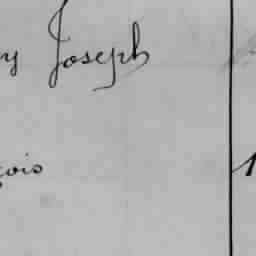 y Joseph
çois 1